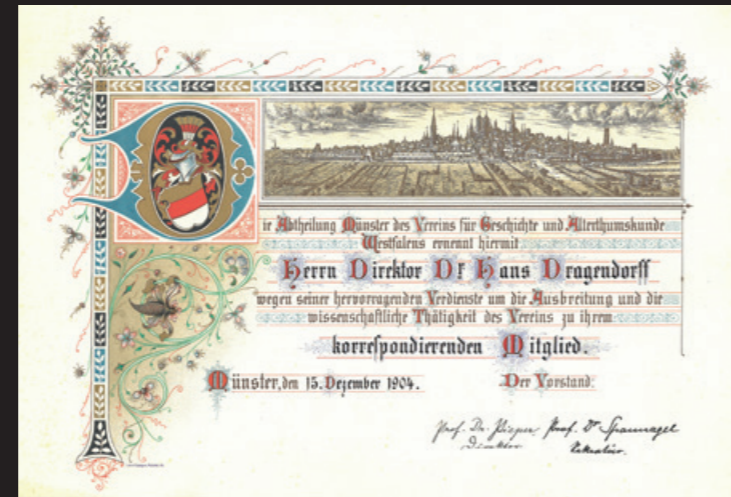 Die Abtheilung Münster des Vereins für Geschichte und Alterthumskunde
Westfalens ernennt hiermit
Herrn Direktor Dr Hans Dragendorff
wegen seiner hervorragenden Verdienste um die Ausbreitung und die
wissenschaftliche Thätigkeit des Vereins zu ihrem
korrespondierenden Mitglied.
Münster, den 15. Dezember 1904. Der Vorstand:
Prof. Dr. Pieper Prof. Dr Spannagel
Direktor Sekretär.